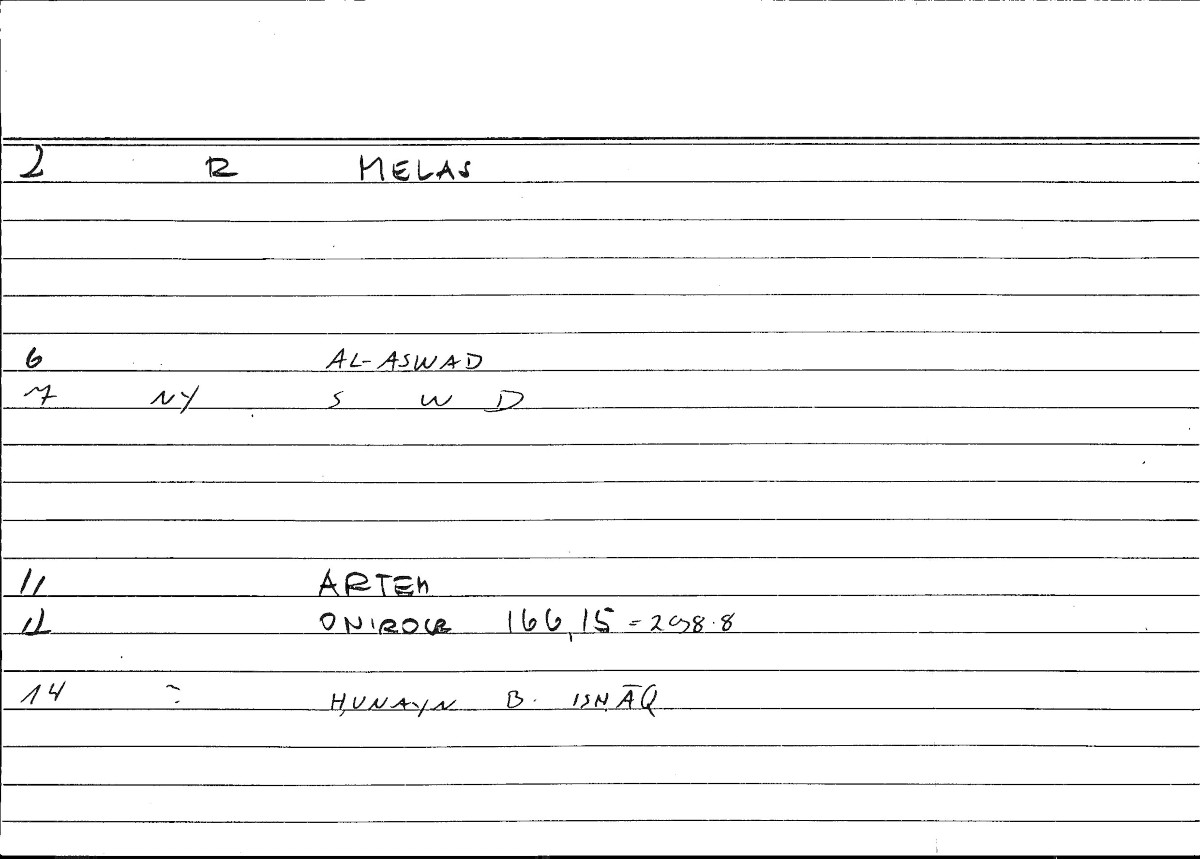 2 R MELAS
6 AL-ASWAD
7 NY S W D
11 ARTEM
12 ONIROCR 166,15 = 298.8
14 ~ ḤUNAYN B. ISḤĀQ